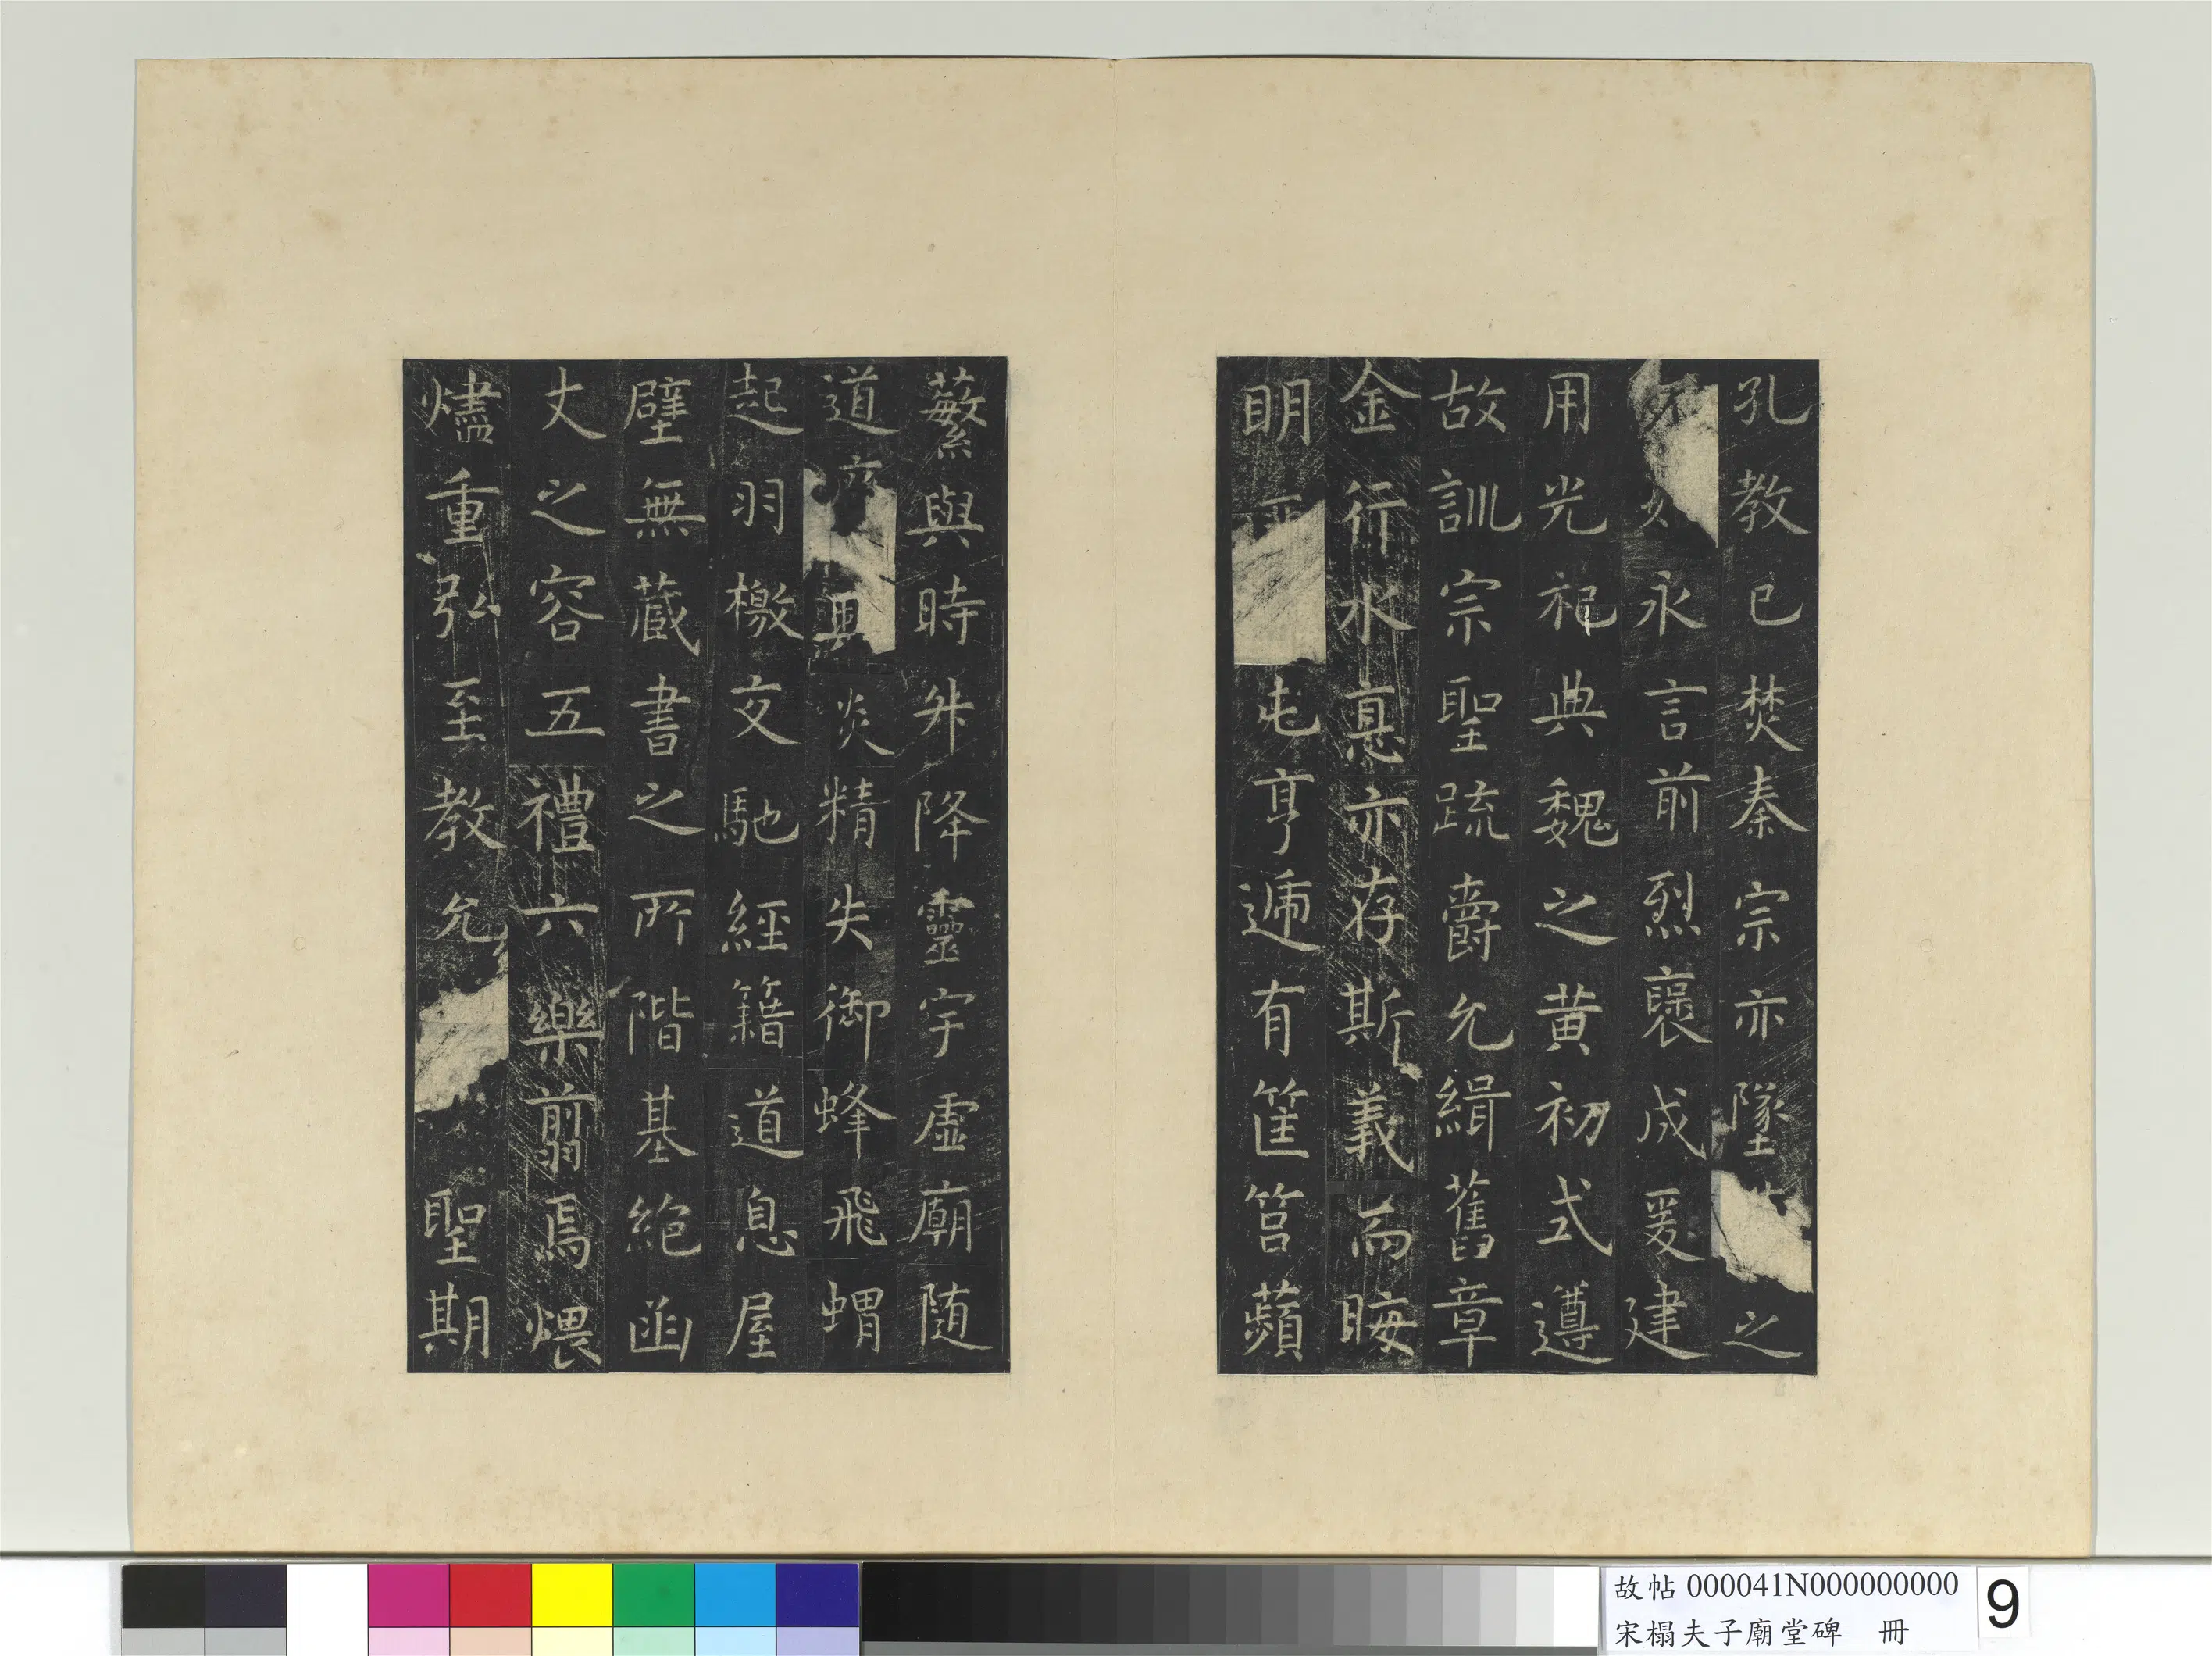 孔教已焚秦宗亦墜之
永言前烈襃成爰建
用光祀典魏之黄初式遵
故訓宗聖疏爵允緝舊章
金行水悳亦存斯義而晦
明屯亨遞有筐筥蘋
蘩與時升降靈宇虛廟随
道興炎精失御蜂飛蝟
起羽檄交馳經籍道息屋
壁無藏書之所階基絶函
丈之容五禮六樂翦焉煨
燼重弘至教允聖期
故帖 000041N000000000
宋榻夫子廟堂碑 冊
9